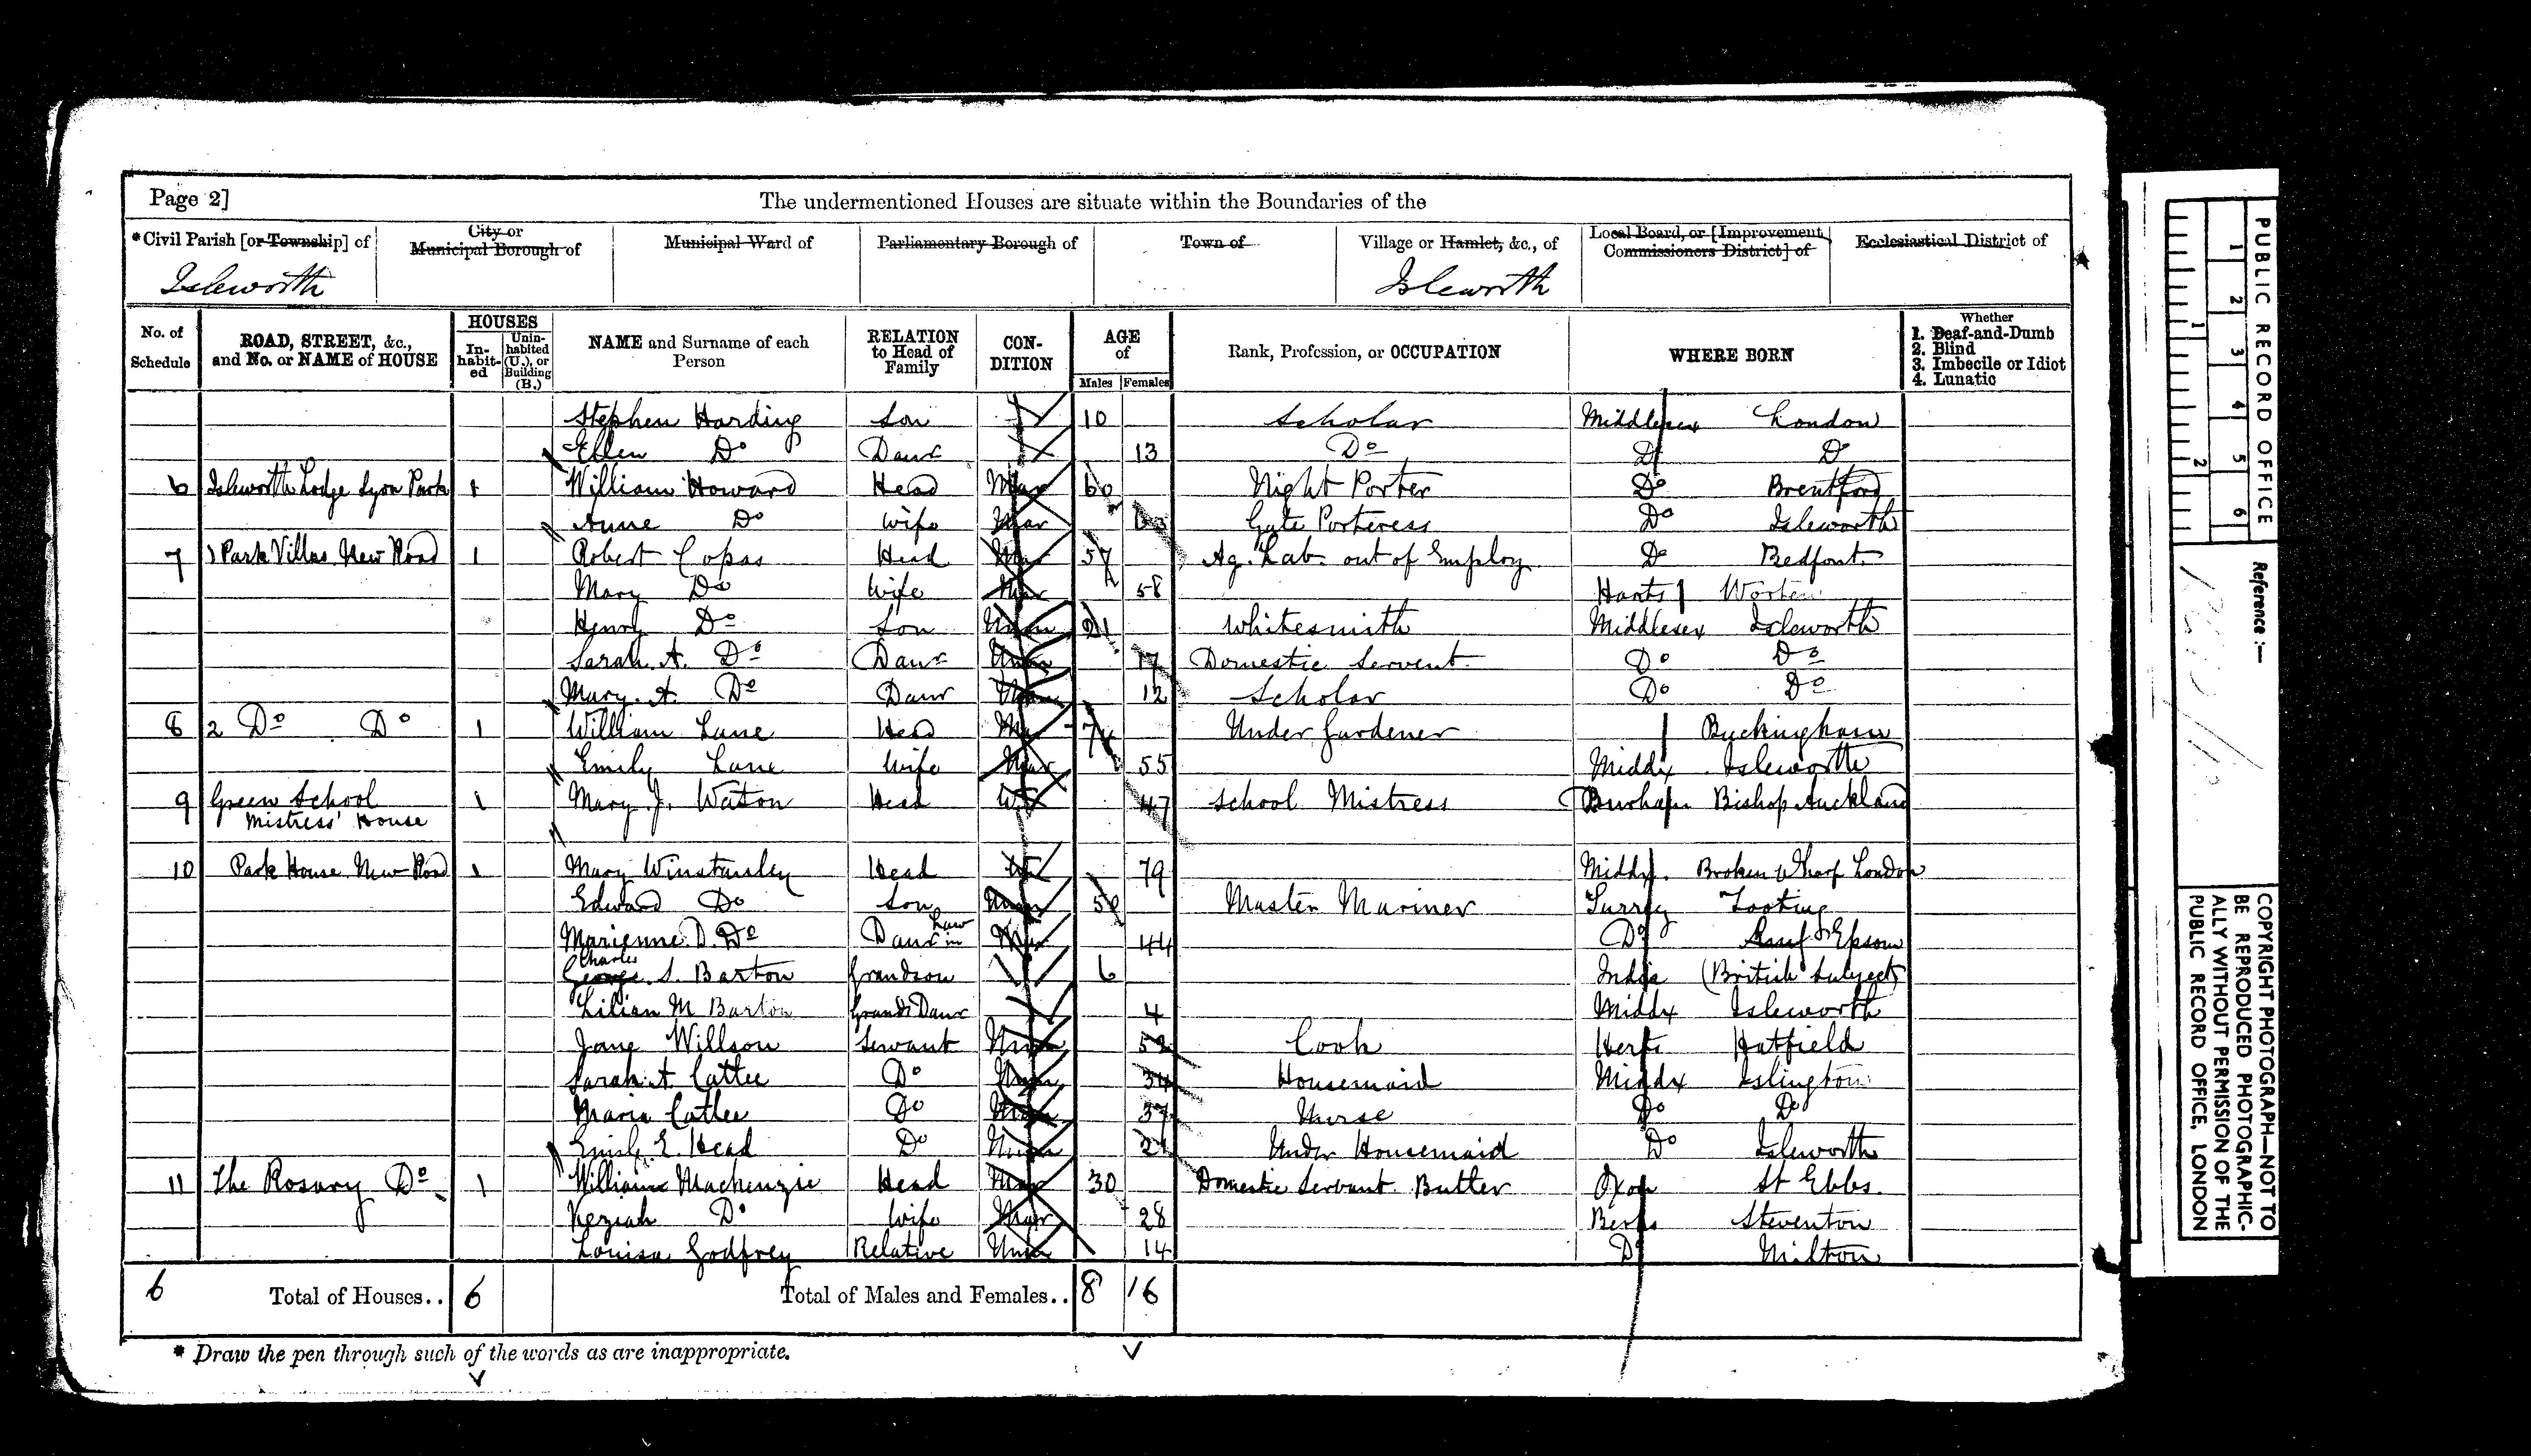 Page 2]
The undermentioned Houses are situate within the Boundaries of the
*Civil Parish [or Township] of
City or Municipal Borough of
Municipal Ward of
Parliamentary Borough of
Town of
Village or Hamlet, &c., of
Local Board, or [Improvement Commissioners District] of
Ecclesiastical District of
Isleworth
Isleworth
No. of Schedule
ROAD, STREET, &c., and No. or NAME of HOUSE
HOUSES
In-habit-ed
Unin-habited (U.), or Building (B.)
NAME and Surname of each Person
RELATION to Head of Family
CON-DITION
AGE of
Males
Females
Rank, Profession, or OCCUPATION
WHERE BORN
Whether
1. Deaf-and-Dumb
2. Blind
3. Imbecile or Idiot
4. Lunatic
Stephen Harding Son 10 Scholar Middlesex London
Ellen Do Daur 13 Do Do Do
6 Isleworth Lodge Syon Park 1 William Howard Head Mar 60 Night Porter Do Brentford
Anne Do Wife Mar Gate Porteress Do Isleworth
7 1 Park Villas New Road 1 Robert Copas Head Mar 57 Ag. Lab. out of Employ Do Bedfont
Mary Do Wife Mar 58 Hants
Henry Do Son Unm 21 Whitesmith Middlesex Isleworth
Sarah A. Do Daur Unm 17 Domestic Servent Do Do
Mary. A. Do Daur Unm 12 Scholar Do Do
8 2 Do Do 1 William Lane Head Mar 74 Under Gardener Buckingham
Emily Lane Wife Mar 55 Middx Isleworth
9 Green School 1 Mary J. Watson Head 47 School Mistress Durham Bishop Auckland
Mistress' House
10 Park House New Road 1 Mary Winstanley Head 79 Middx. Broken Wharf London
Edward Do Son Unm 50 Master Mariner Surrey Tooting
Marienne D. Do Daur in Law Mar 44 Do Epsom
Charles
George S. Barton Grandson 6 India (British Subject)
Lilian M Barton Grand Daur 4 Middx Isleworth
Jane Willson Servant Unm 52 Cook Herts Hatfield
Sarah A. Catlee Do Unm 34 Housemaid Middx Islington
Maria Catlee Do Unm 37 Nurse Do Do
Emily E. Head Do Unm 21 Under Housemaid Do Isleworth
11 The Rosary Do 1 William Mackenzie Head Mar 30 Domestic Servant. Butler Oxon St Ebbs.
Keziah Do Wife Mar 28 Berks Steventon
Louisa Godfrey Relative Unm 14 Do Milton
6 Total of Houses.. 6 Total of Males and Females.. 8 16
* Draw the pen through such of the words as are inappropriate.
PUBLIC RECORD OFFICE
1 2 3 4 5 6
1 2
Reference :—
COPYRIGHT PHOTOGRAPH—NOT TO
BE REPRODUCED PHOTOGRAPHIC-
ALLY WITHOUT PERMISSION OF THE
PUBLIC RECORD OFFICE, LONDON